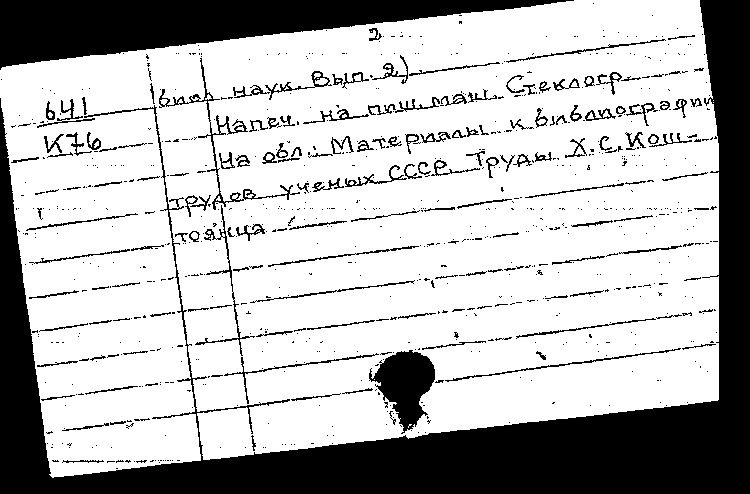 2
641
К76
биол наук. Вып. 2)
Напеч. на пиш. маш. Стеклогр.
На обл.: Материалы к библиографии
трудов ученых СССР. Труды Х.С. Кош-
тоянца